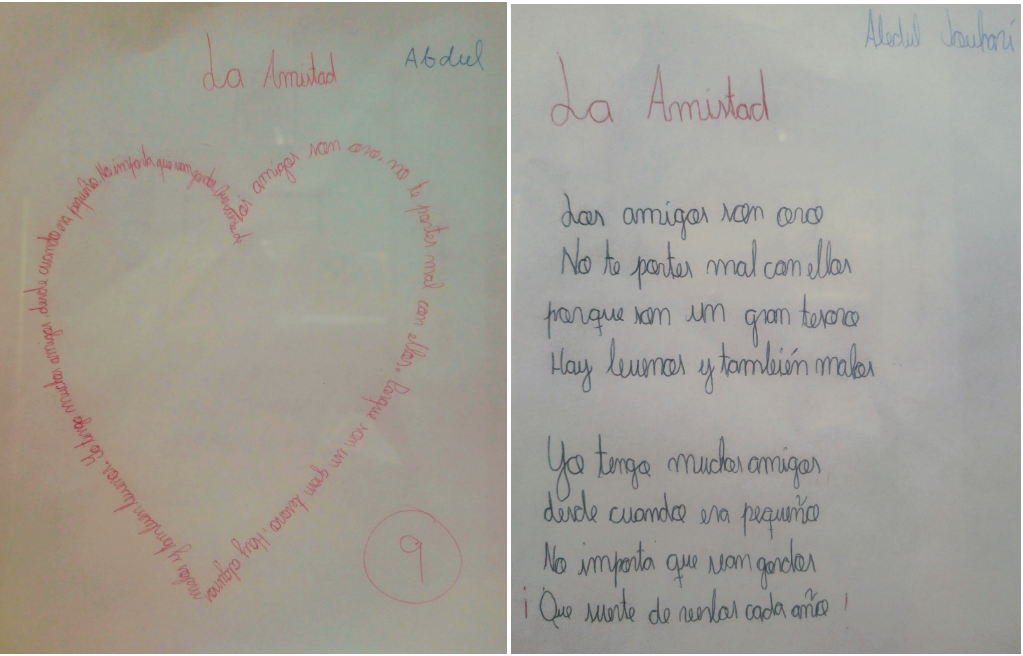 La Amistad
Abdul
Los amigos son oro, no te portes mal con ellos. Porque son un gran tesoro. Hay algunos malos y tambien buenos. Yo tengo muchos amigos desde cuando era pequeño No importa que sean gordos,
9
Abdul Jouhari
La Amistad
Los amigos son oro
No te portes mal con ellos
porque son un gran tesoro
Hay buenos y también malos
Yo tengo muchos amigos
desde cuando era pequeño
No importa que sean gordos
¡Que suerte de verlos cada año!